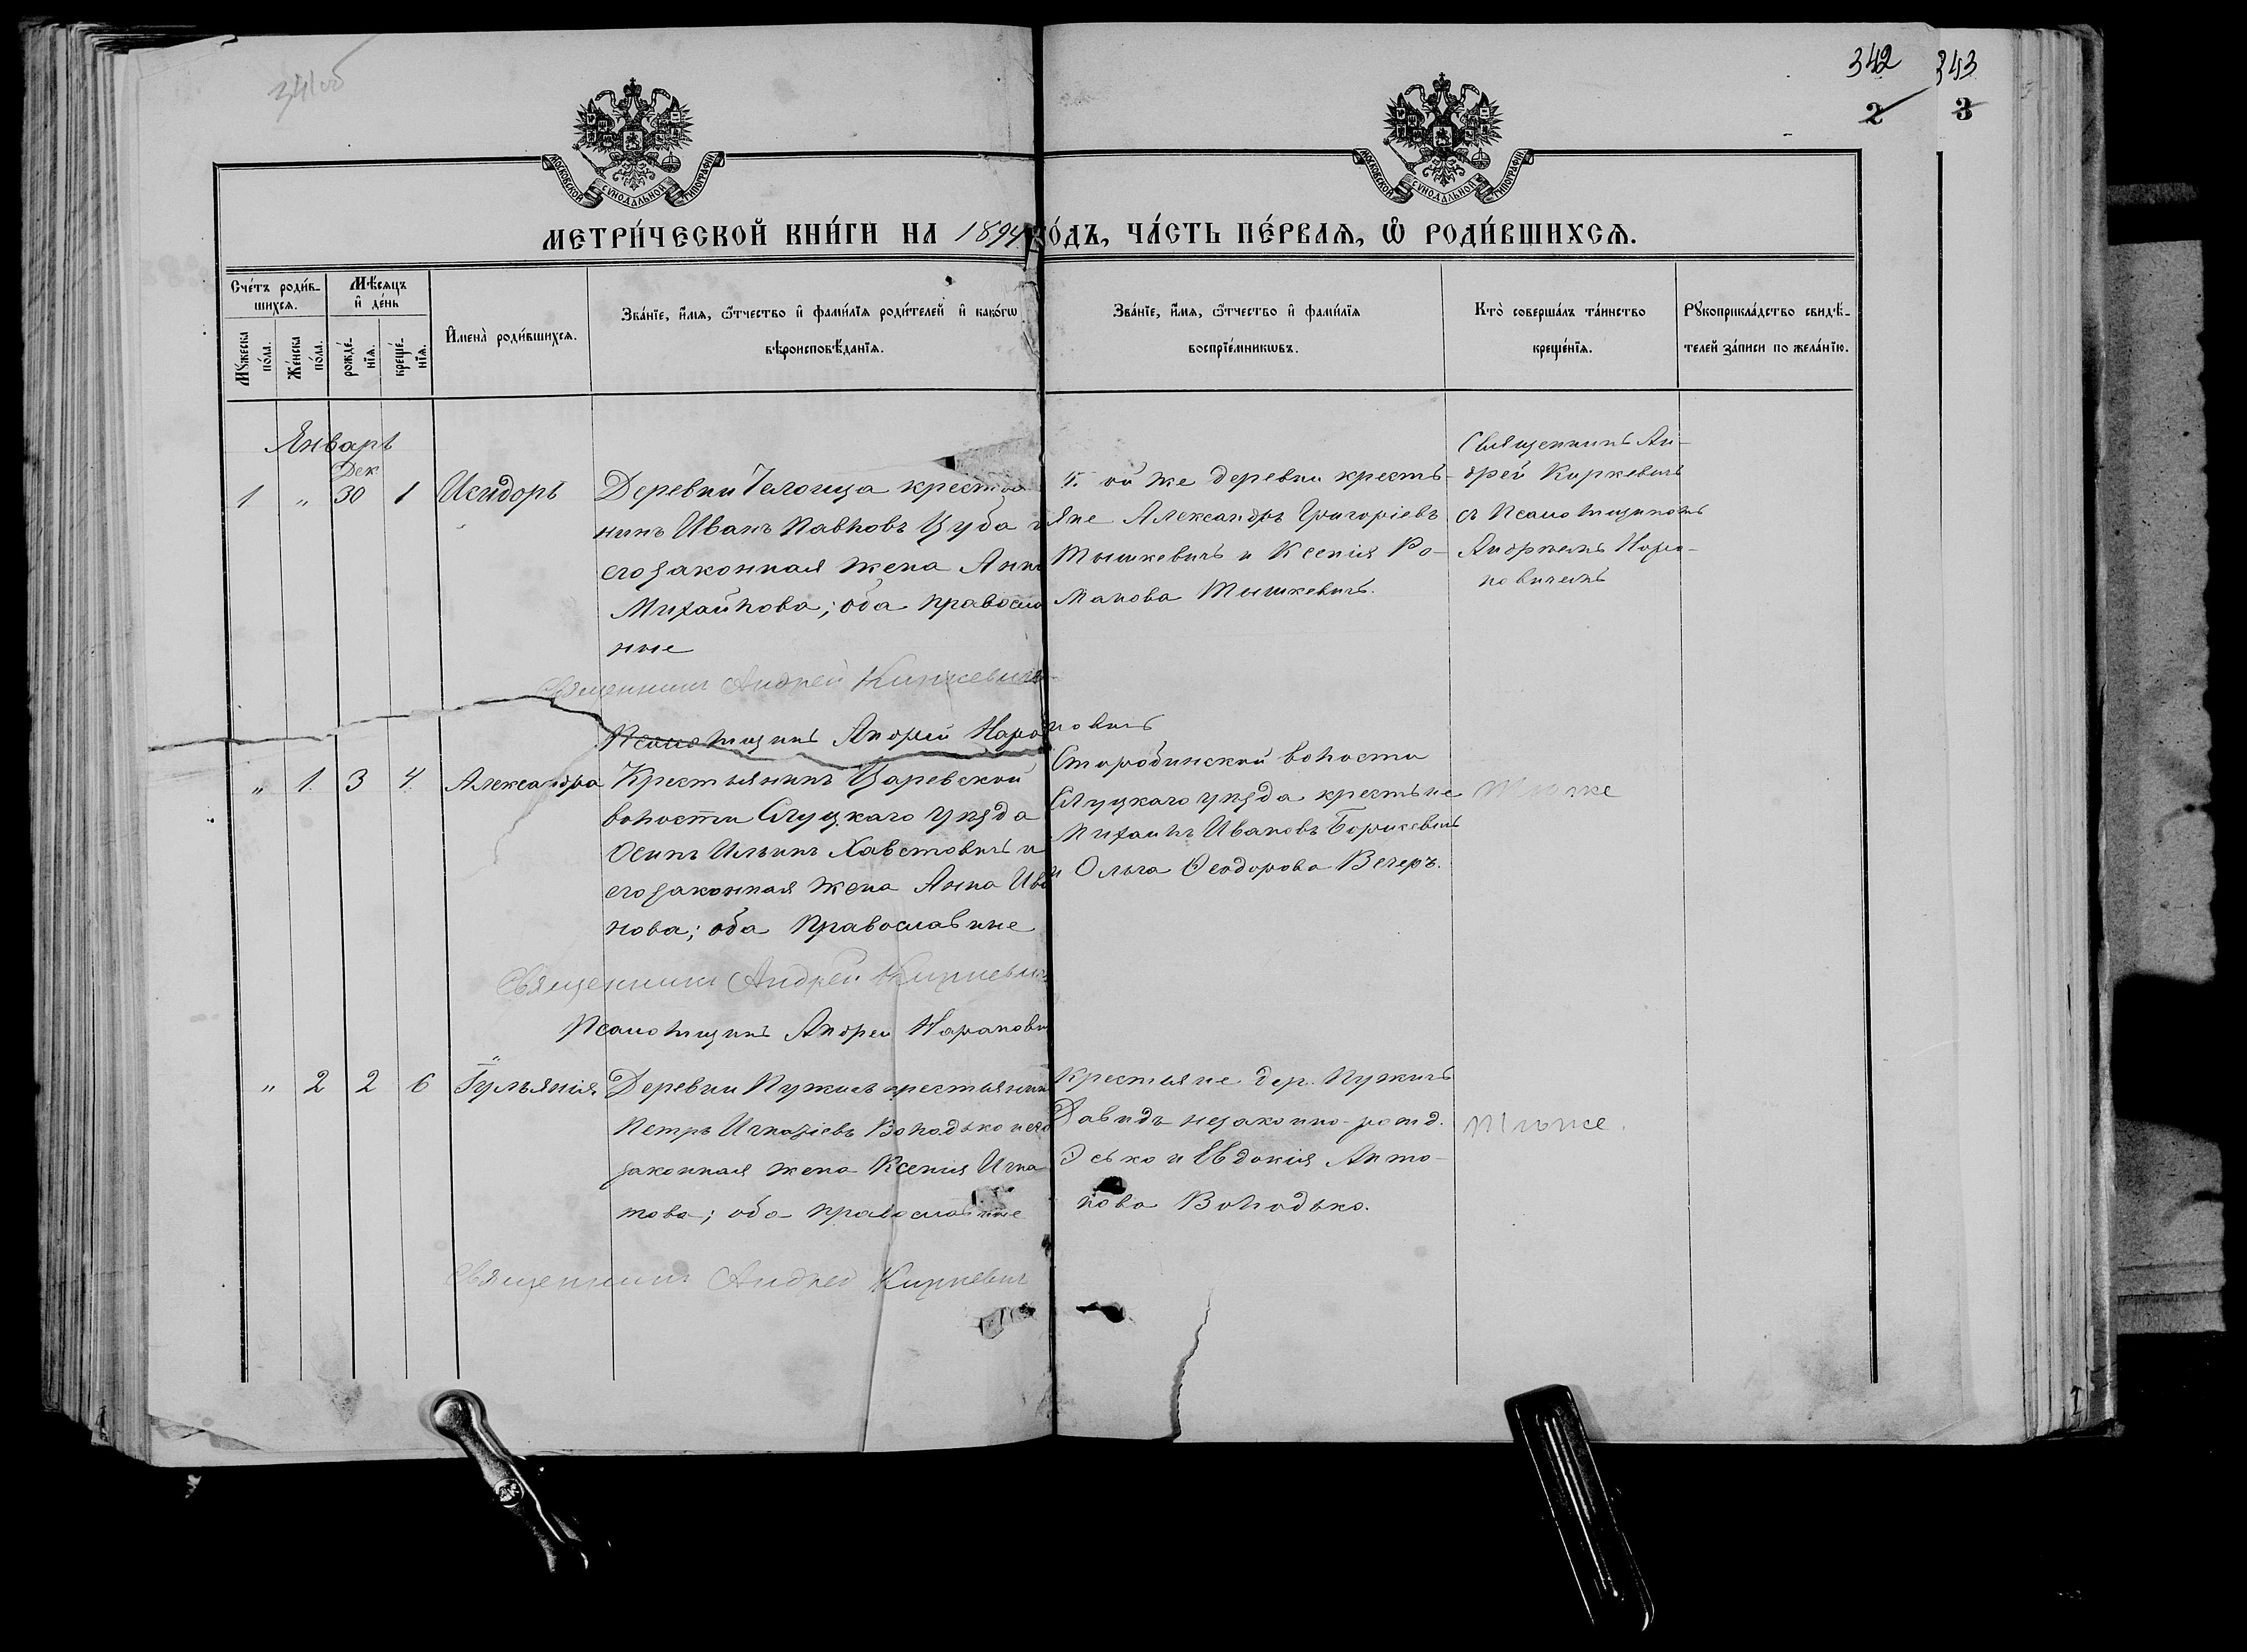 341об
342
343
2
3
МОСКОВСКОЙ СѴНОДАЛЬНОЙ ТИПОГРАФІИ
МОСКОВСКОЙ СѴНОДАЛЬНОЙ ТИПОГРАФІИ
МЕТРИ́ЧЕСКОЙ КНИ́ГИ НА 1894 ГО́ДЪ, ЧА́СТЬ ПЕ́РВАѦ, Ѡ҆ РОДИ́ВШИХСѦ.
Сче́тъ роди́в-
шихсѧ.
Мѣ́сѧцъ
и҆ де́нь
Мꙋ́жеска
по́ла.
Же́нска
по́ла.
рожде́-
нїѧ.
креще́-
нїѧ.
И҆мена̀ роди́вшихсѧ.
Зва́нїе, и҆́мѧ, ѻ҆́тчество и҆ фами́лїѧ роди́телей и҆ како́гѡ
вѣроисповѣ́данїѧ.
Зва́нїе, и҆́мѧ, ѻ҆́тчество и҆ фами́лїѧ
воспрїе́мникѡвъ.
Кто̀ соверша́лъ та́инство
креще́нїѧ.
Рꙋкоприкла́дство свидѣ́-
телей за́писи по жела́нїю.
Январь
Дек
1 " 30 1 Исидоръ
Деревни крестья
нинъ Иванъ Павловъ Цуба и
его законная жена Анна
Михайлова; оба правосла
ные
Священникъ Андрей Киркевичъ
Той же деревни кресть-
яне Александръ Григоріевъ
Тышкевичъ и Ксенія Ро-
манова Тышкевичъ.
Священникъ Ан-
дрей Киркевичъ
съ Псаломщикомъ
Андреемъ Наро-
новичемъ
Псаломщикъ Андрей Нароновичъ
" 1. 3 4. Александра
Крестьянинъ Царевской
волости Слуцкаго уѣзда
Осипъ Ильинъ Хавстовичъ и
его законная жена Анна Ива
нова; оба православные
Старобинской волости
Слуцкаго уѣзда крестьяне
Михаилъ Ивановъ Борисевичъ
и Ольга Ѳеодорова Вечеръ.
Тѣ же
Священникъ Андрей Киркевичъ
Псаломщикъ Андрей Нарановичъ
" 2 2 6 Іульянія.
Деревни Пужичъ крестьянинъ
Петръ Игнатіевъ Володько и его
законная жена Ксенія Игна
това; оба православные
Крестьяне дер. Пужичъ
Давидъ незаконно-рожд.
Эсько и Евдокія Анто-
нова Володько.
Тѣ же.
Священникъ Андрей Киркевич